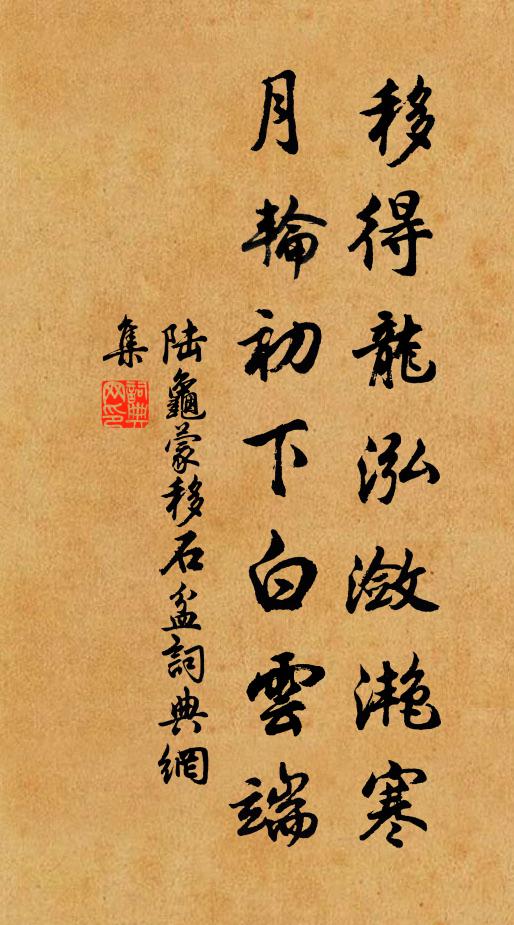 移得龍泓瀲灔寒
月輪初下白雲端
陸龜蒙移石盆詞典網
集
詞典網印